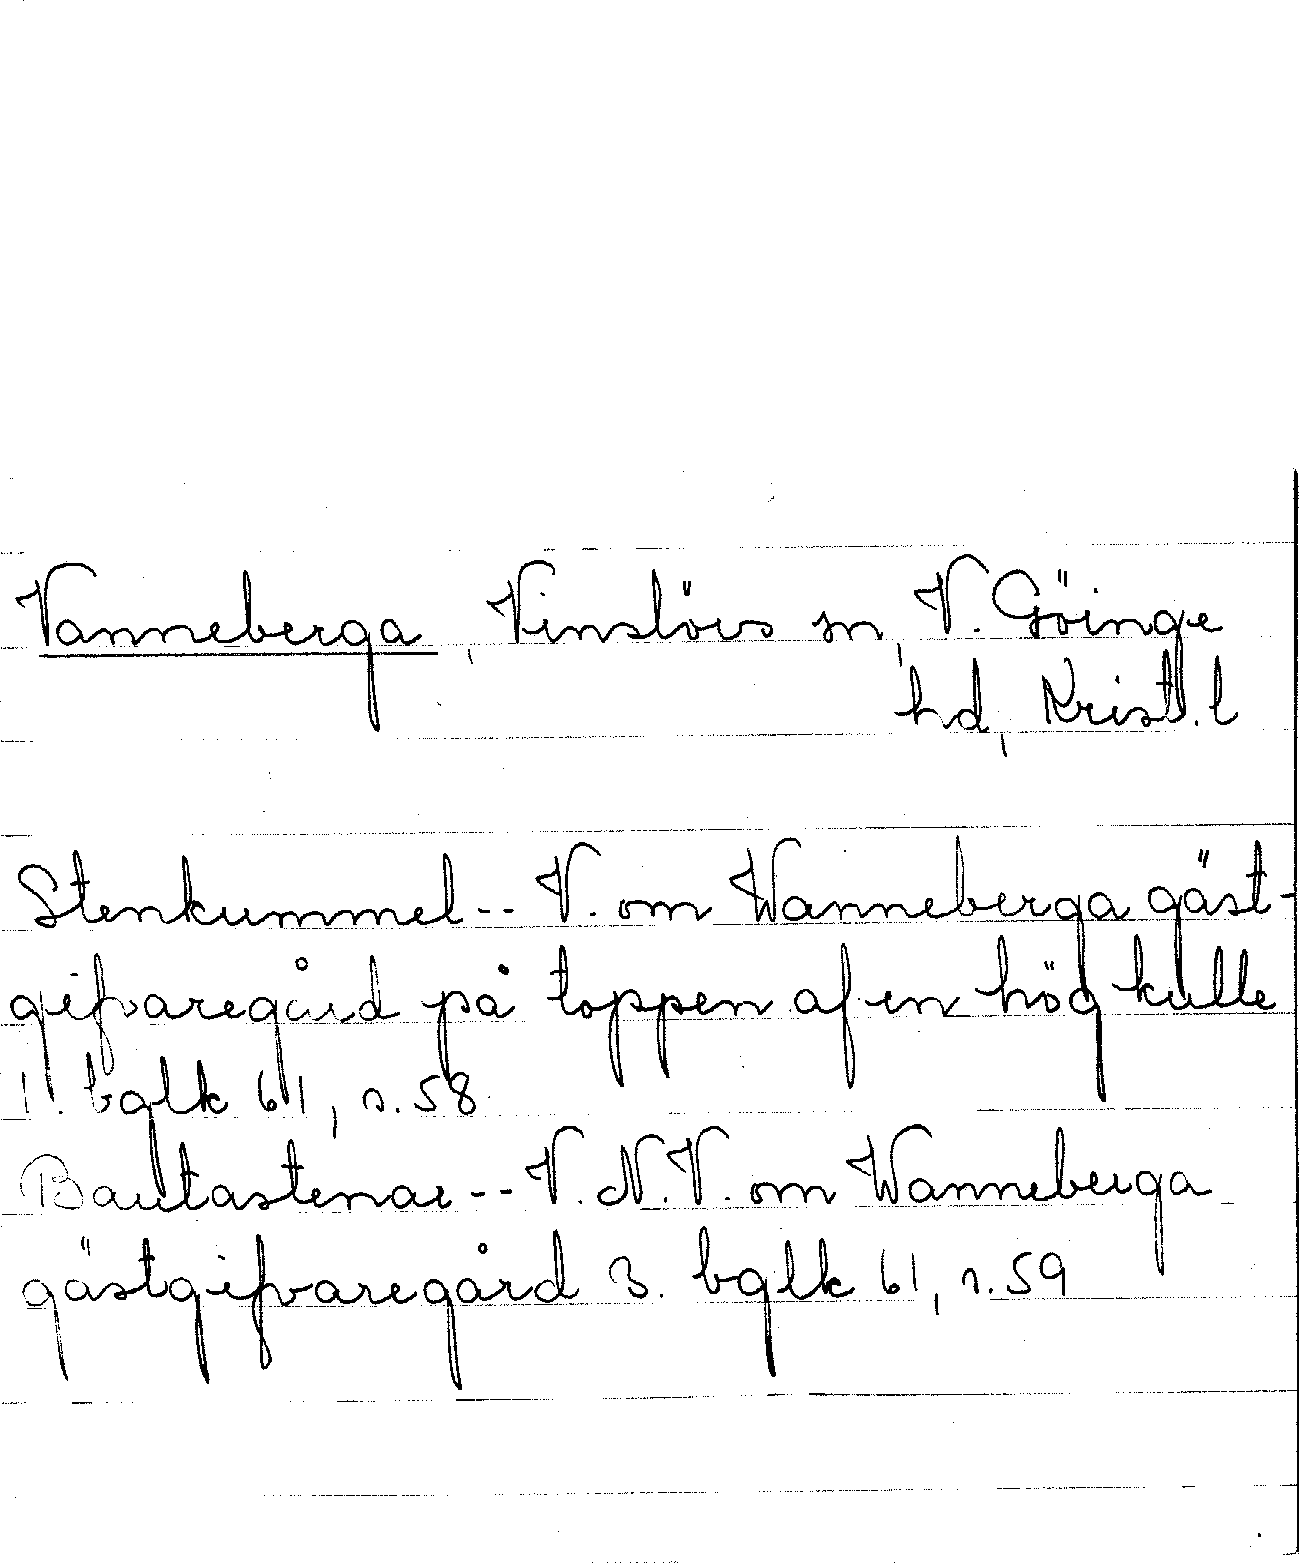 Vanneberga, Vinslövs sn, V. Göinge
hd, Krist. l
Stenkummel -- V. om Wanneberga gäst-
gifvaregård på toppen af en hög kulle
1. bglk 61, s. 58
Bautastenar -- V. N. V. om Wanneberga
gästgifvaregård 3. bglk 61, s. 59